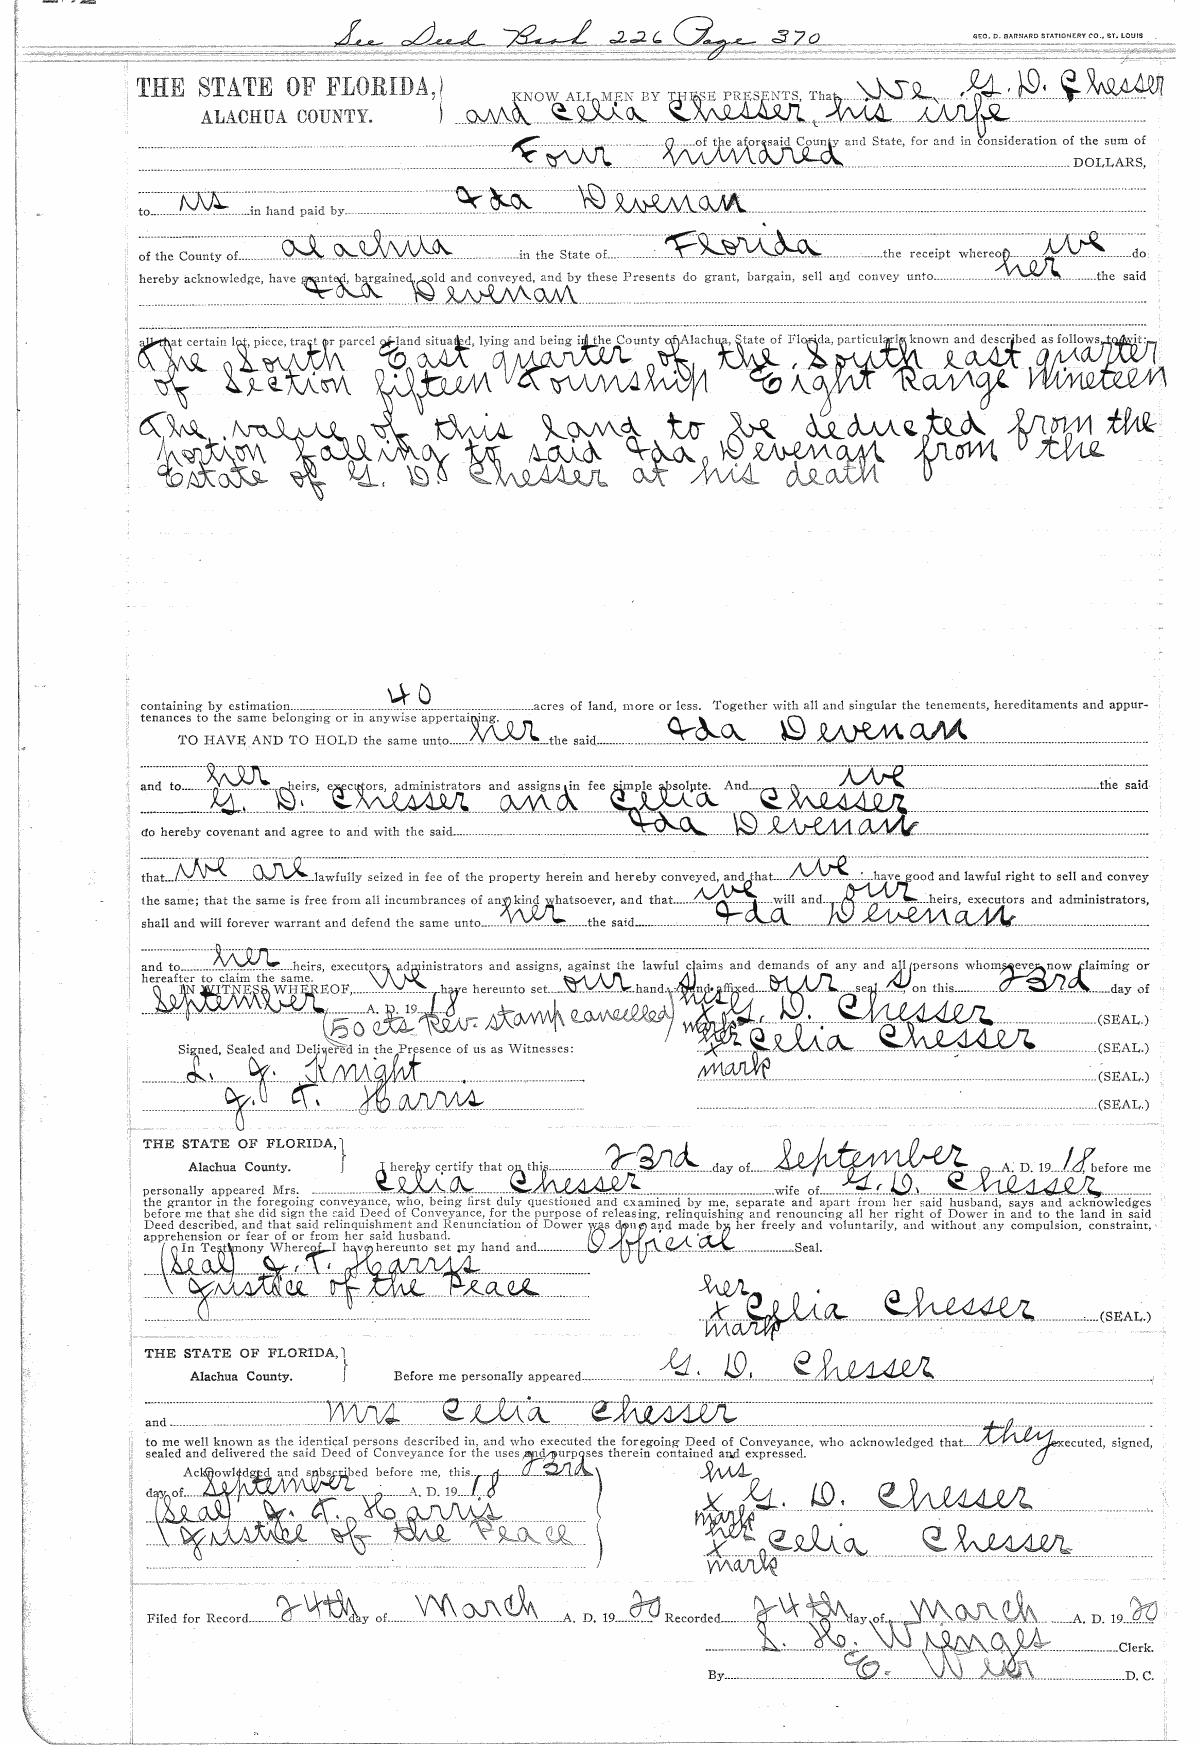 See Deed Book 226 Page 370
GEO. D. BARNARD STATIONERY CO., ST. LOUIS
THE STATE OF FLORIDA,
ALACHUA COUNTY.
KNOW ALL MEN BY THESE PRESENTS, That We G. D. Chesser
and Celia Chesser, his wife
of the aforesaid County and State, for and in consideration of the sum of
Four hundred DOLLARS,
to us in hand paid by Ida Devenan
of the County of Alachua in the State of Florida the receipt whereof we do
hereby acknowledge, have granted, bargained, sold and conveyed, and by these Presents do grant, bargain, sell and convey unto her the said
Ida Devenan
all that certain lot, piece, tract or parcel of land situated, lying and being in the County of Alachua, State of Florida, particularly known and described as follows, to-wit:
The South East quarter of the South east quarter
of Section fifteen Township Eight Range Nineteen
The value of this land to be deducted from the
portion falling to said Ida Devenan from the
Estate of G. D. Chesser at his death
containing by estimation 40 acres of land, more or less. Together with all and singular the tenements, hereditaments and appur-
tenances to the same belonging or in anywise appertaining.
TO HAVE AND TO HOLD the same unto her the said Ida Devenan
and to her heirs, executors, administrators and assigns in fee simple absolute. And we the said
G. D. Chesser and Celia Chesser
do hereby covenant and agree to and with the said Ida Devenan
that we are lawfully seized in fee of the property herein and hereby conveyed, and that we have good and lawful right to sell and convey
the same; that the same is free from all incumbrances of any kind whatsoever, and that we will and our heirs, executors and administrators,
shall and will forever warrant and defend the same unto her the said Ida Devenan
and to her heirs, executors, administrators and assigns, against the lawful claims and demands of any and all persons whomsoever now claiming or
hereafter to claim the same.
IN WITNESS WHEREOF, We have hereunto set our hand s and affixed our seal s on this 23rd day of
September A. D. 19 18
(50 cts Rev. stamp cancelled)
his
x G. D. Chesser (SEAL.)
mark
her
x Celia Chesser (SEAL.)
mark
Signed, Sealed and Delivered in the Presence of us as Witnesses:
L. J. Knight (SEAL.)
J. T. Harris (SEAL.)
THE STATE OF FLORIDA,
Alachua County.
I hereby certify that on this 23rd day of September A. D. 19 18, before me
personally appeared Mrs. Celia Chesser wife of G. D. Chesser
the grantor in the foregoing conveyance, who, being first duly questioned and examined by me, separate and apart from her said husband, says and acknowledges
before me that she did sign the said Deed of Conveyance, for the purpose of releasing, relinquishing and renouncing all her right of Dower in and to the land in said
Deed described, and that said relinquishment and Renunciation of Dower was done and made by her freely and voluntarily, and without any compulsion, constraint,
apprehension or fear of or from her said husband.
In Testimony Whereof, I have hereunto set my hand and Official Seal.
(Seal) J. T. Harris
Justice of the Peace
her
x Celia Chesser (SEAL.)
mark
THE STATE OF FLORIDA,
Alachua County.
Before me personally appeared G. D. Chesser
and Mrs Celia Chesser
to me well known as the identical persons described in, and who executed the foregoing Deed of Conveyance, who acknowledged that they executed, signed,
sealed and delivered the said Deed of Conveyance for the uses and purposes therein contained and expressed.
Acknowledged and subscribed before me, this 23rd
day of September A. D. 19 18
(Seal) J. T. Harris
Justice of the Peace
his
x G. D. Chesser
mark
her
x Celia Chesser
mark
Filed for Record 24th day of March A. D. 19 20 Recorded 24th day of March A. D. 19 20
S. H. Wienges Clerk.
By E. Weir D. C.